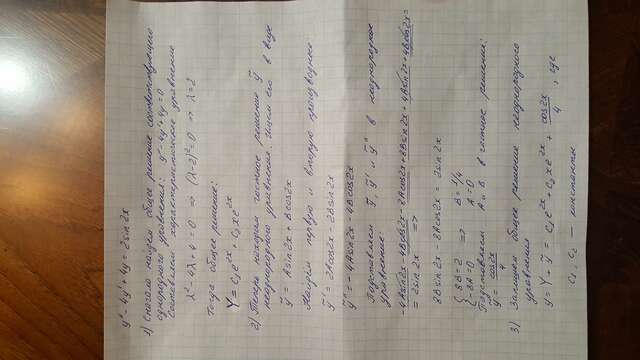 y''-4y'+4y=2sin2x
1) Сначала найдем общее решение соответствующего
однородного уравнения: y''-4y'+4y=0
Составляем характеристическое уравнение
λ²-4λ+4=0 => (λ-2)²=0 => λ=2
Тогда общее решение:
Y=C₁e²ˣ+C₂xe²ˣ
2) Теперь находим частное решение ỹ
неоднородного уравнения. Ищем его в виде
ỹ=Asin2x+Bcos2x
Найдём первую и вторую производную:
ỹ'=2Acos2x-2Bsin2x
ỹ''=-4Asin2x-4Bcos2x
Подставляем ỹ, ỹ' и ỹ'' в неоднородное
уравнение:
-4Asin2x-4Bcos2x-8Acos2x+8Bsin2x+4Asin2x+4Bcos2x=
=2sin2x =>
8Bsin2x-8Acos2x=2sin2x
{8B=2 => B=1/4
{-8A=0 A=0
Подставляем A и B в частное решение:
ỹ=cos2x/4
3) Запишем общее решение неоднородного
уравнения
y=Y+ỹ=C₁e²ˣ+C₂xe²ˣ+cos2x/4, где
C₁, C₂ — константы